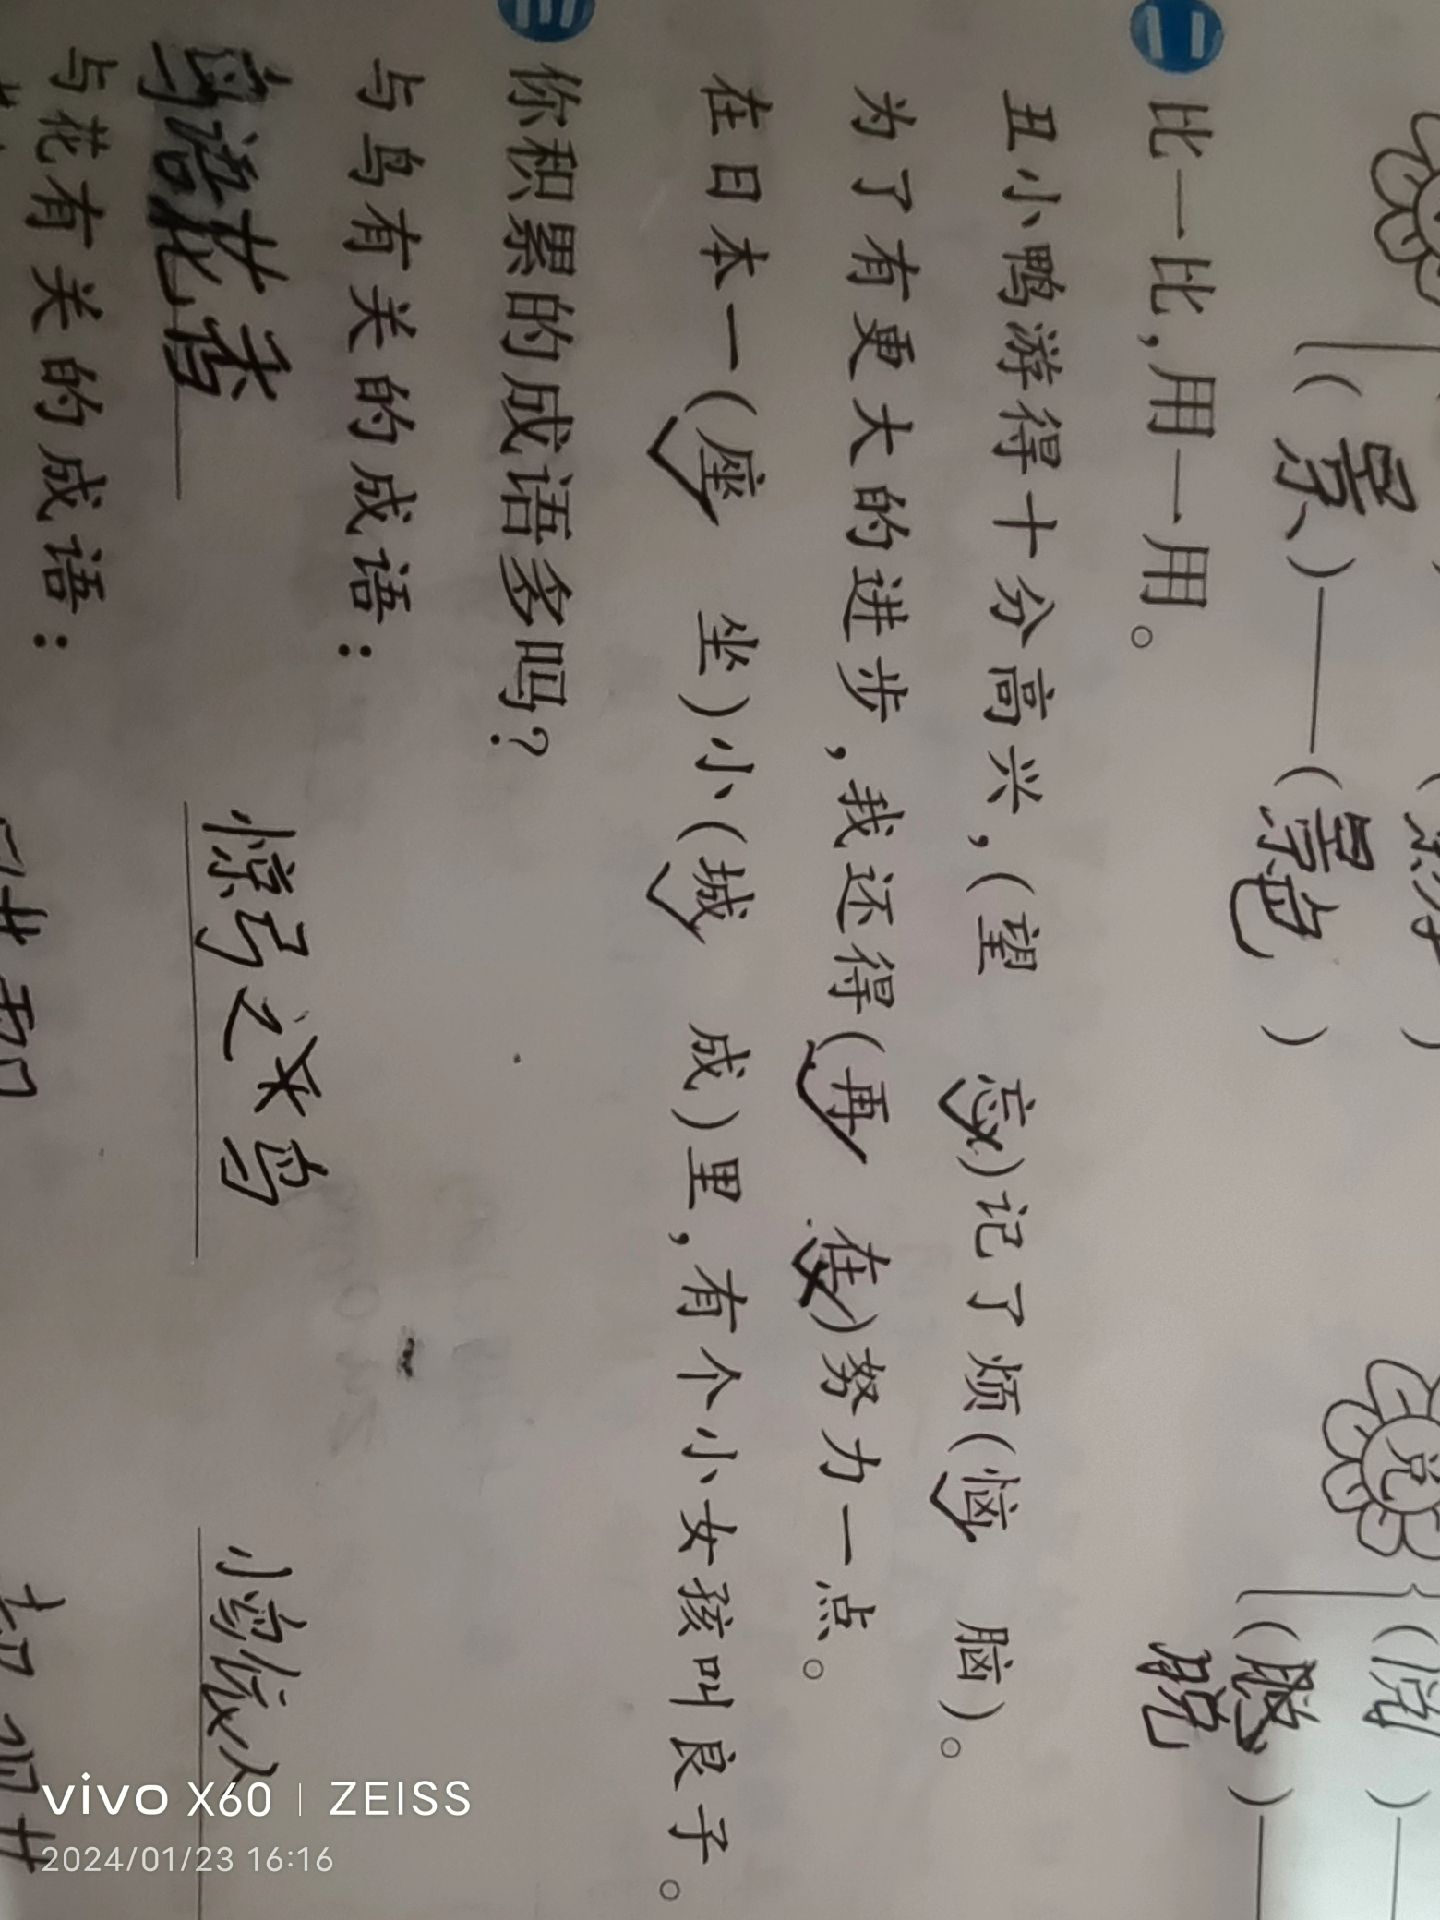 (景)——(景色)
兑
(阅)
(聪)——
脱
二 比一比,用一用。
丑小鸭游得十分高兴,(望 忘)记了烦(恼 脑)。
为了有更大的进步,我还得(再 在)努力一点。
在日本一(座 坐)小(城 成)里,有个小女孩叫良子。
三 你积累的成语多吗?
与鸟有关的成语:
鸟语花香 惊弓之鸟 小鸟依人
与花有关的成语:
vivo X60 | ZEISS
2024/01/23 16:16